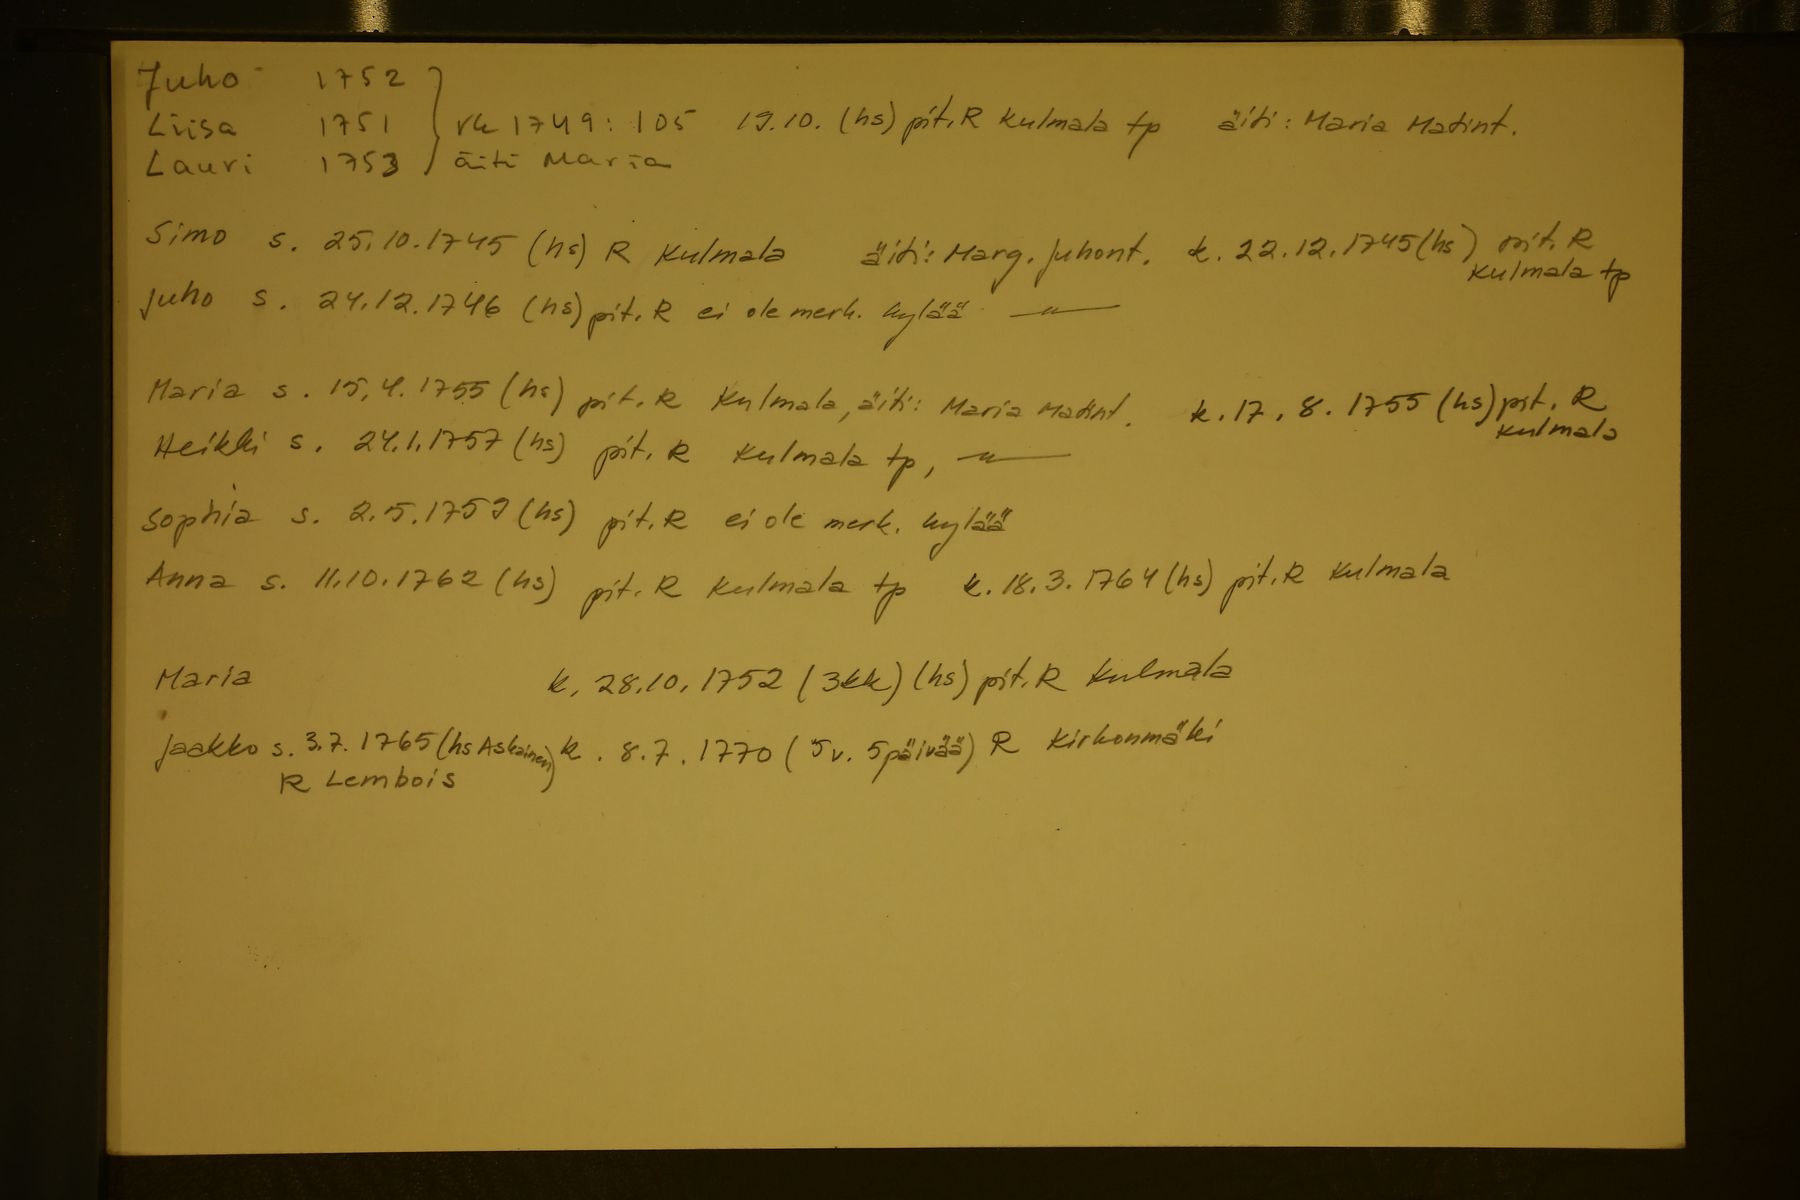 Juho 1752
Liisa 1751 rk 1749: 105 19.10. (hs) pit. R Kulmala tp äiti: Maria Matint.
Lauri 1753 äiti Maria
Simo s. 25.10.1745 (hs) R Kulmala äiti: Marg. Juhont. k. 22.12.1745 (hs) pit. R
Kulmala tp
Juho s. 24.12.1746 (hs) pit. R ei ole merk. kylää —"—
Maria s. 15.4.1755 (hs) pit. R Kulmala, äiti: Maria Matint. k. 17.8.1755 (hs) pit. R
Kulmala
Heikki s. 24.1.1757 (hs) pit. R Kulmala tp, —"—
Sophia s. 2.5.1759 (hs) pit. R ei ole merk. kylää
Anna s. 11.10.1762 (hs) pit. R Kulmala tp k. 18.3.1764 (hs) pit. R Kulmala
Maria k. 28.10.1752 (3kk) (hs) pit. R Kulmala
Jaakko s. 3.7.1765 (hs Askainen) k. 8.7.1770 (5 v. 5 päivää) R Kirkonmäki
R Lembois